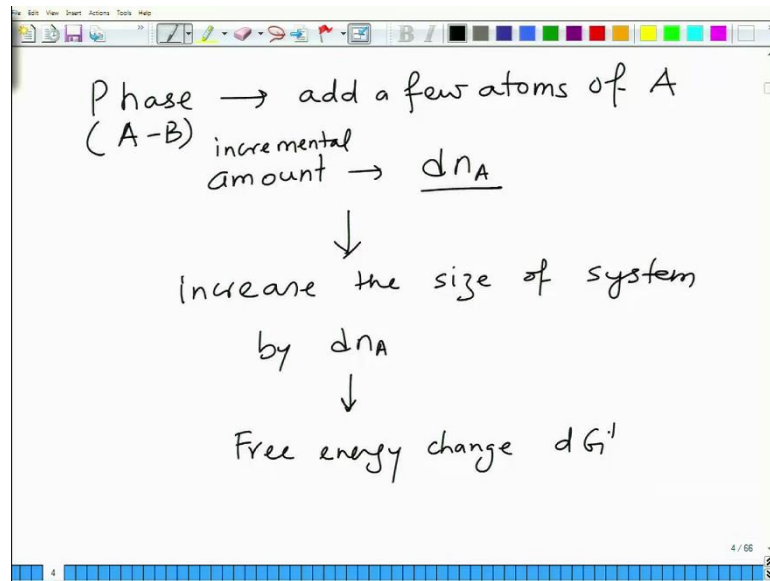 File Edit View Insert Actions Tools Help
B I
Phase → add a few atoms of A
(A-B) incremental
amount → dnA
↓
increase the size of system
by dnA
↓
Free energy change dG'
4 / 66
4